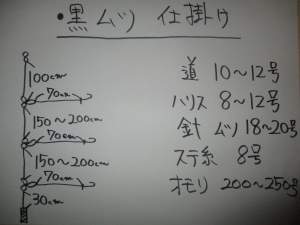 ・黒ムツ 仕掛け
100cm
70cm
150〜200cm
70cm
150〜200cm
70cm
30cm
道 10〜12号
ハリス 8〜12号
針 ムツ 18〜20号
ステ糸 8号
オモリ 200〜250号